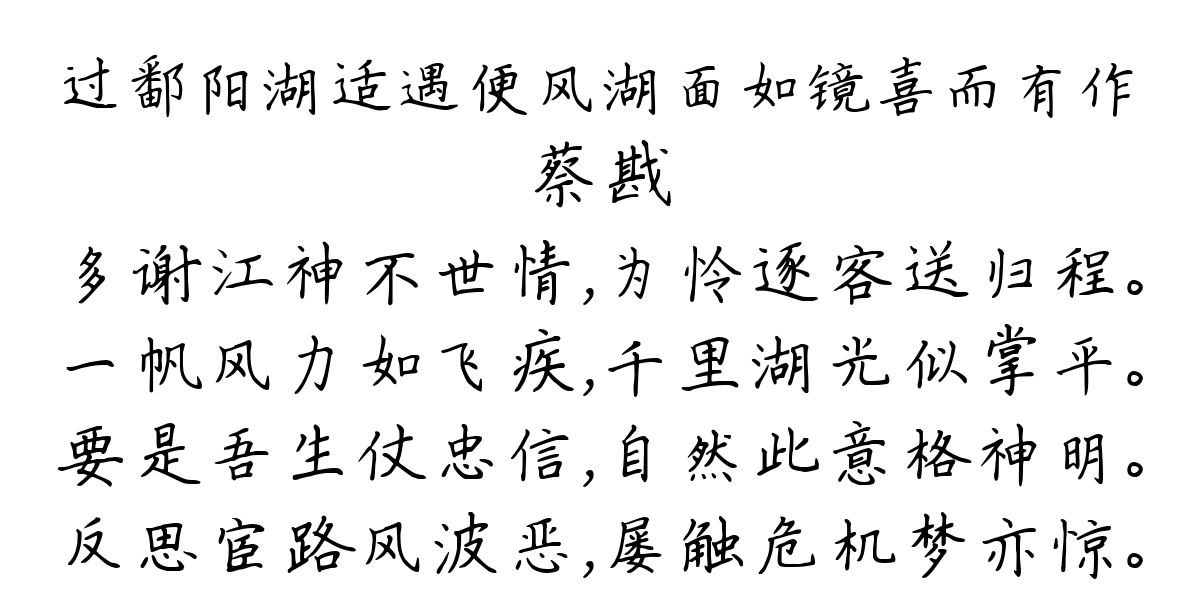 过鄱阳湖适遇便风湖面如镜喜而有作
蔡戡
多谢江神不世情,为怜逐客送归程。
一帆风力如飞疾,千里湖光似掌平。
要是吾生仗忠信,自然此意格神明。
反思宦路风波恶,屡触危机梦亦惊。